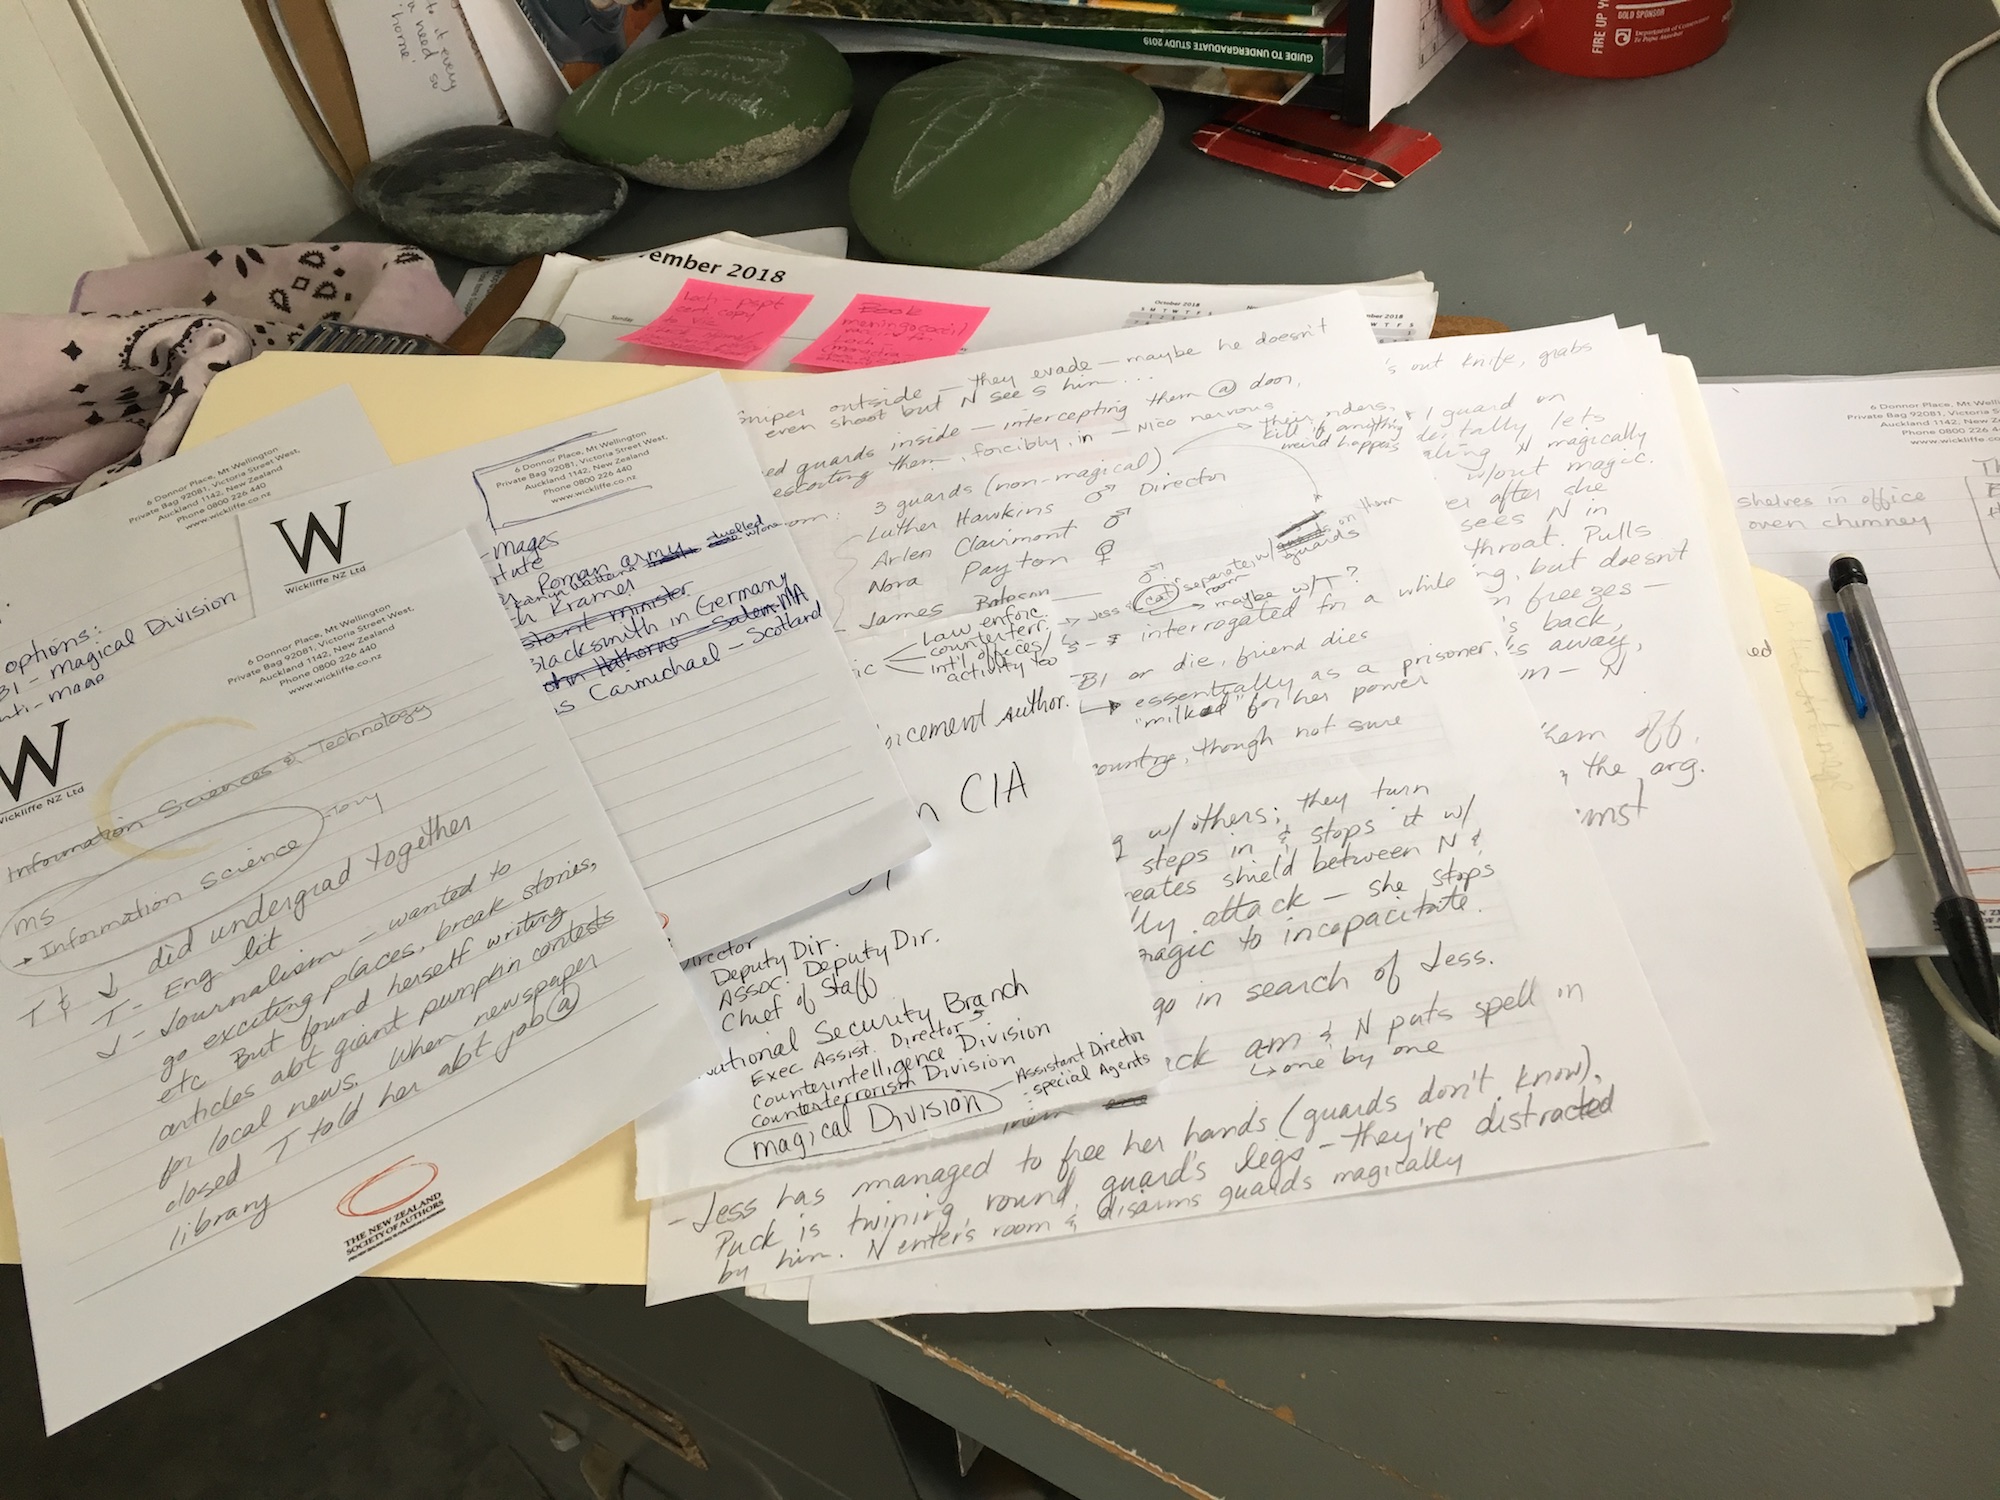 to it every
need so
'home'
GUIDE TO UNDERGRADUATE STUDY 2019
FIRE UP Y
GOLD SPONSOR
Department of Conservation
Te Papa Atawhai
vember 2018
Sunday
October 2018
S M T W T F S
ember 2018
Loch - pspt
cert. copy
Book
meningococcal
Loch
6 Donnor Place, Mt Wellington
Private Bag 92081, Victoria Street West,
Auckland 1142, New Zealand
Phone 0800 226 440
www.wickliffe.co.nz
options:
BI - magical Division
nti-mage
W
Wickliffe NZ Ltd
6 Donnor Place, Mt Wellington
Private Bag 92081, Victoria Street West,
Auckland 1142, New Zealand
Phone 0800 226 440
www.wickliffe.co.nz
W
Wickliffe NZ Ltd
Information Sciences & Technology
MS
→ Information Science
T & J did undergrad together
T - Eng lit
J - Journalism - wanted to
go exciting places, break stories,
etc. But found herself writing
articles abt giant pumpkin contests
for local news. When newspaper
closed T told her abt job @
library
THE NEW ZEALAND
SOCIETY OF AUTHORS
6 Donnor Place, Mt Wellington
Private Bag 92081, Victoria Street West,
Auckland 1142, New Zealand
Phone 0800 226 440
www.wickliffe.co.nz
-Mages
tute
Roman army duelled w/one
h Kramer
stant minister
Blacksmith in Germany
ohn Hathorne - Salem MA
s Carmichael - Scotland
niper outside - they evade - maybe he doesn't
even shoot but N sees him...
ed guards inside - intercepting them @ door,
escorting them, forcibly, in - Nico nervous
3 guards (non-magical) → their orders,
kill if anything
weird happens
Luther Hawkins ♂ Director
Arlen Clairmont ♂
Nora Payton ♀
James
Jess & cat separate room w/ guards on them
→ maybe w/T?
Law enforc.
counterterr.
int'l offices/
activity too
interrogated for a while
BI or die, friend dies
→ essentially as a prisoner,
"milked" for her power
country, though not sure
rcement author.
n CIA
g w/ others; they turn
steps in & stops it w/
reates shield between N &
ly attack - she stops
magic to incapacitate.
go in search of Jess.
ck am & N puts spell in
↳ one by one
Director
Deputy Dir.
Assoc. Deputy Dir.
Chief of Staff
National Security Branch
Exec Assist. Directors
Counterintelligence Division
Counterterrorism Division
magical Division - Assistant Director
: special Agents
them
- Jess has managed to free her hands (guards don't know).
Puck is twining round guard's legs - they're distracted
by him. N enters room & disarms guards magically
's out knife, grabs
& 1 guard on
dentally lets
aling N magically
w/out magic.
er after she
sees N in
throat. Pulls
ng, but doesn't
n freezes -
s back,
's away,
m - N
hem off.
the org.
inst
6 Donnor Place, Mt Wellington
Private Bag 92081, Victoria Street West,
Auckland 1142, New Zealand
Phone 0800 226 440
www.wickliffe.co.nz
shelves in office
oven chimney